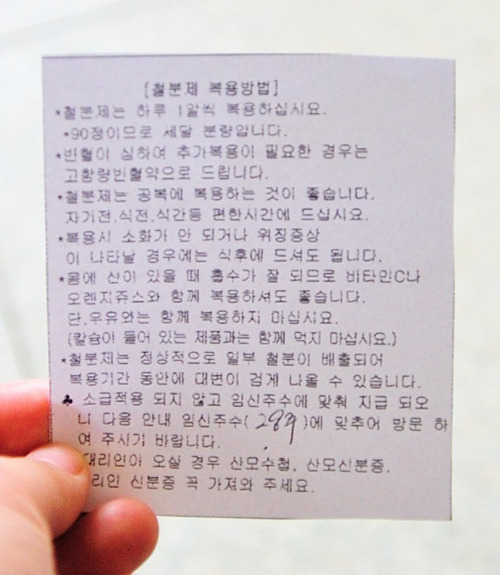 [철분제 복용방법]
*철분제는 하루 1알씩 복용하십시요.
*90정이므로 세달 분량입니다.
*빈혈이 심하여 추가복용이 필요한 경우는
고함량빈혈약으로 드립니다.
*철분제는 공복에 복용하는 것이 좋습니다.
자기전.식전.식간등 편한시간에 드십시요.
*복용시 소화가 안 되거나 위장증상
이 나타날 경우에는 식후에 드셔도 됩니다.
*몸에 산이 있을 때 흡수가 잘 되므로 비타민C나
오렌지쥬스와 함께 복용하셔도 좋습니다.
단.우유와는 함께 복용하지 마십시요.
(칼슘이 들어 있는 제품과는 함께 먹지 마십시요.)
*철분제는 정상적으로 일부 철분이 배출되어
복용기간 동안에 대변이 검게 나올 수 있습니다.
♣ 소급적용 되지 않고 임신주수에 맞춰 지급 되오
니 다음 안내 임신주수( )에 맞추어 방문 하
여 주시기 바랍니다.
대리인이 오실 경우 산모수첩, 산모신분증,
리인 신분증 꼭 가져와 주세요.